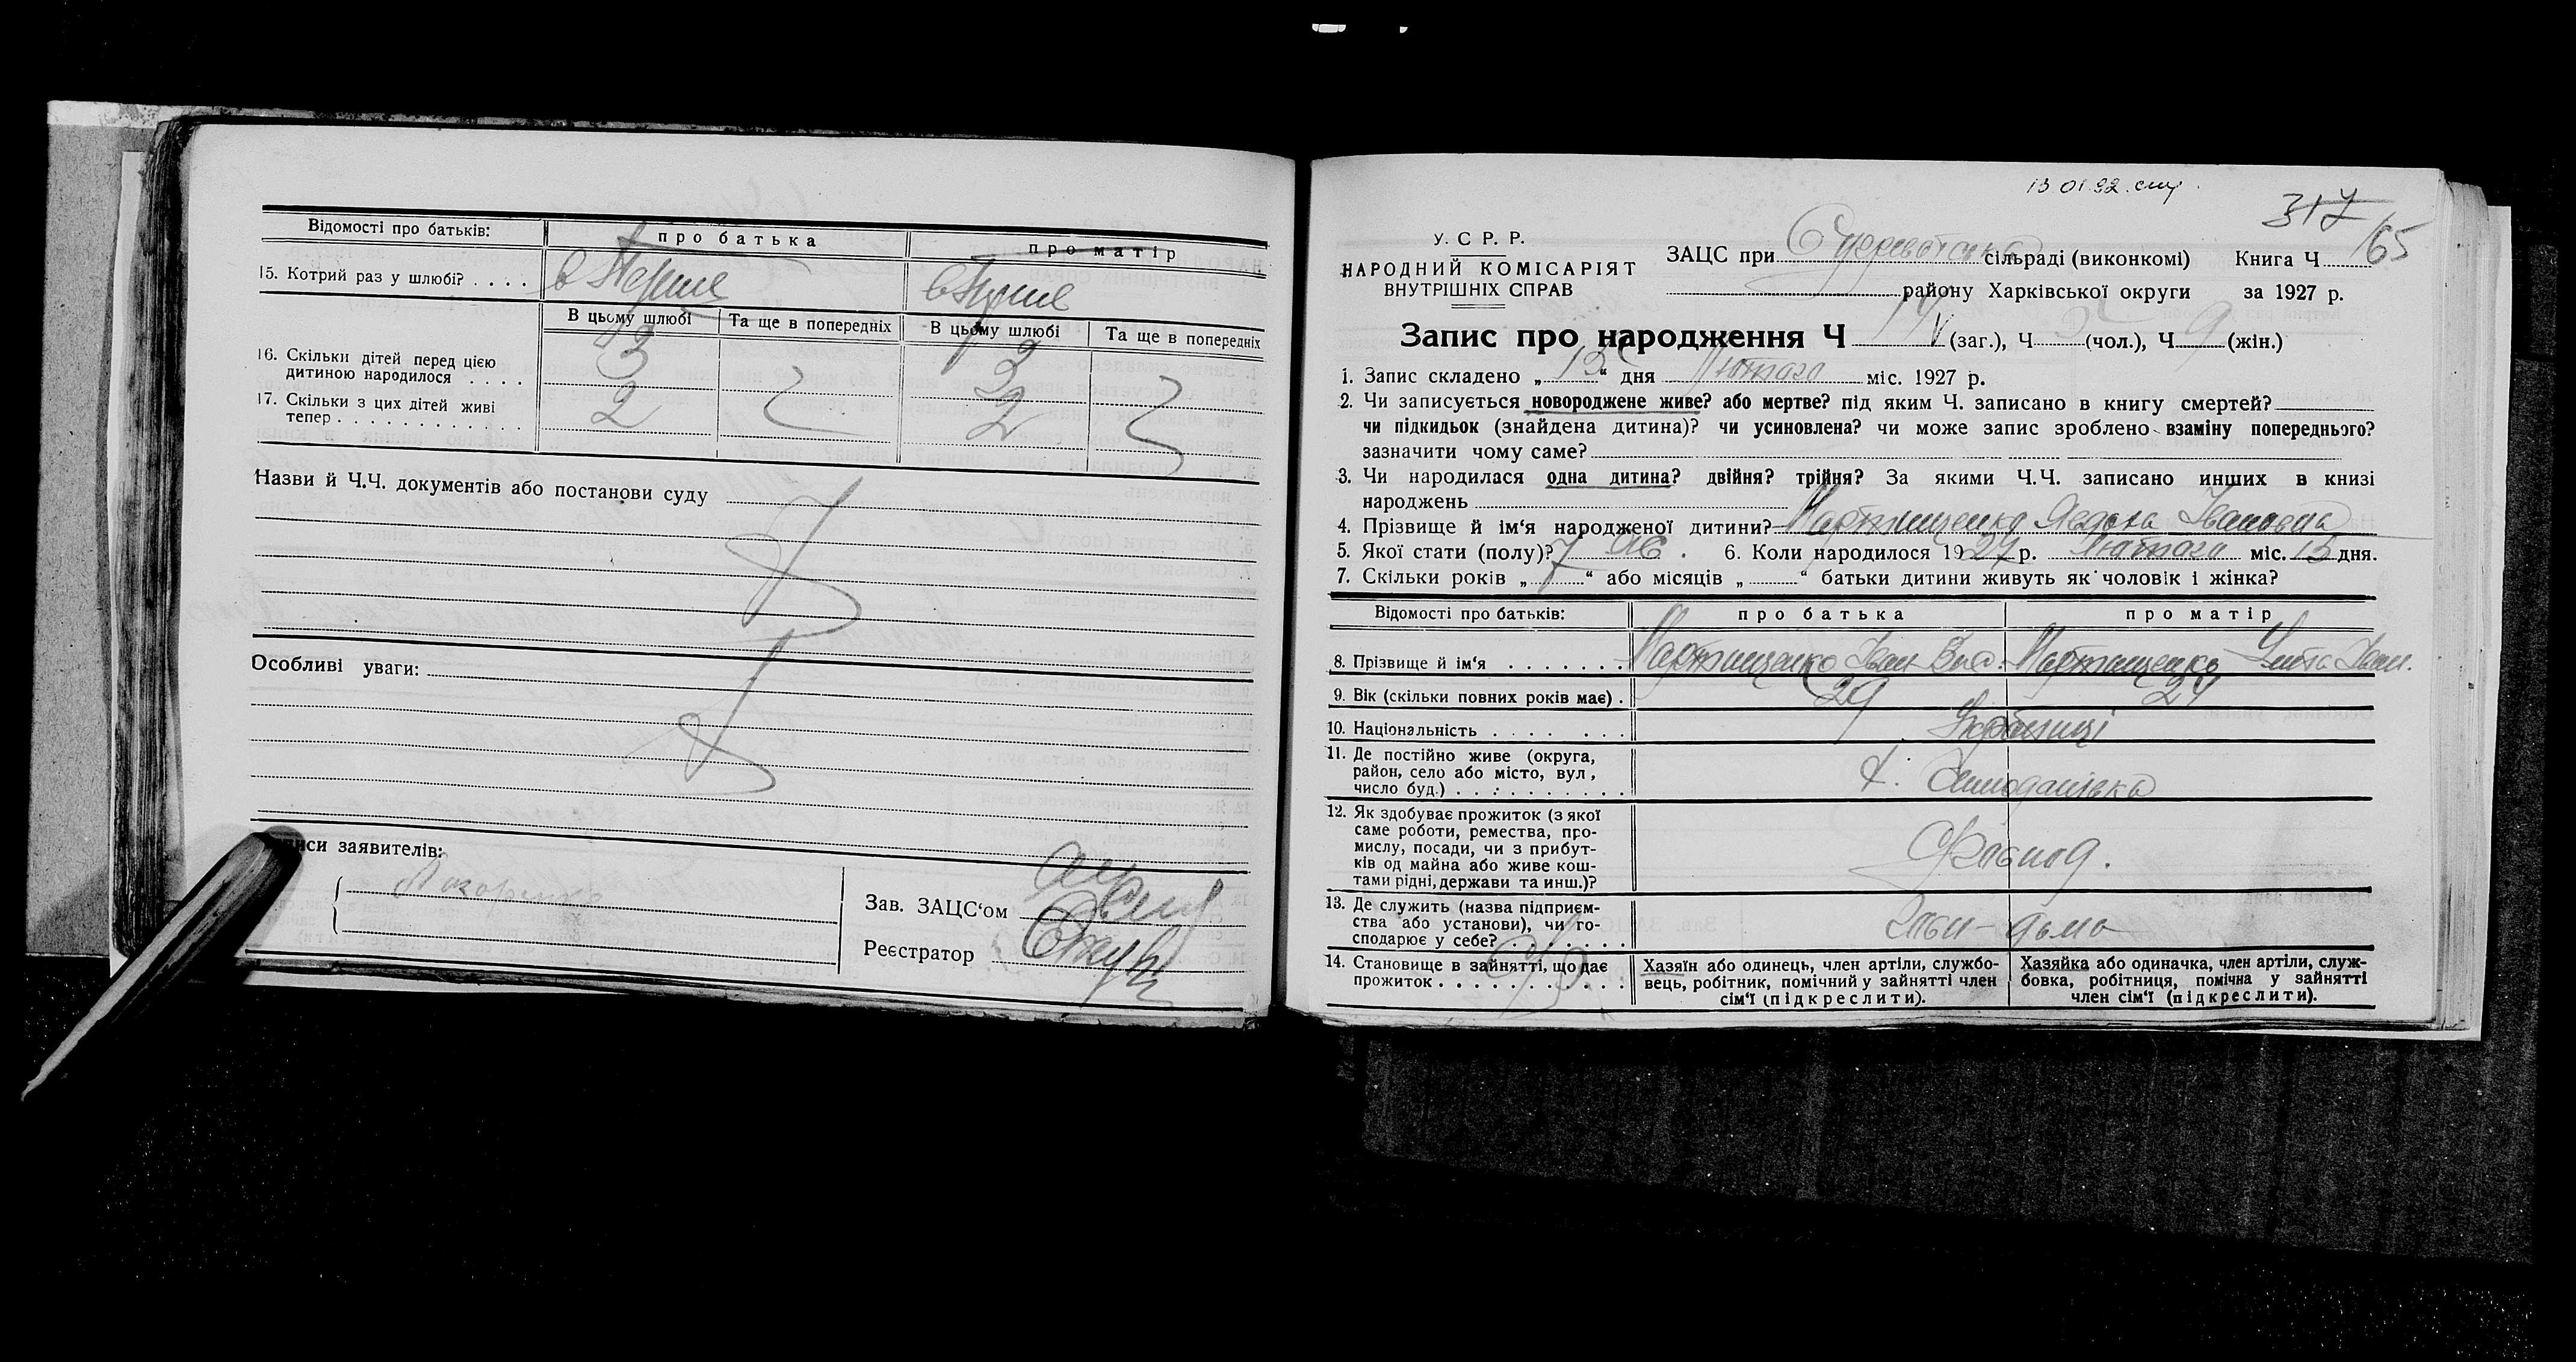 Відомості про батьків: про батька про матір
15. Котрий раз у шлюбі? . . . . в Перше в Перше
В цьому шлюбі Та ще в попередніх В цьому шлюбі Та ще в попередніх
16. Скільки дітей перед цією
дитиною народилося . . . . 3 3
17. Скільки з цих дітей живі
тепер . . . . . . . . . . . . 2 2
Назви й Ч.Ч. документів або постанови суду
Особливі уваги:
писи заявителів:
Зав. ЗАЦС‘ом
Реєстратор
13 01.92.
317
165
У. С Р. Р.
НАРОДНИЙ КОМІСАРІЯТ
ВНУТРІШНІХ СПРАВ
ЗАЦС при сільраді (виконкомі) Книга Ч
району Харківської округи за 1927 р.
Запис про народження Ч (заг.), Ч (чол.), Ч 9 (жін.)
1. Запис складено „ 15 “ дня Лютого міс. 1927 р.
2. Чи записується новороджене живе? або мертве? під яким Ч. записано в книгу смертей?
чи підкидьок (знайдена дитина)? чи усиновлена? чи може запис зроблено взаміну попереднього?
зазначити чому саме?
3. Чи народилася одна дитина? двійня? трійня? За якими Ч.Ч. записано инших в книзі
народжень
4. Прізвище й ім‘я народженої дитини? Мартищенко Явдоха Івановна
5. Якої стати (полу)? Ж. 6. Коли народилося 1927 р. Лютого міс. 13 дня.
7. Скільки років „ 7 “ або місяців „ “ батьки дитини живуть як чоловік і жінка?
Відомості про батьків: про батька про матір
8. Прізвище й ім‘я . . . . . . . Мартищенко Іван Мартищенко Іван.
9. Вік (скільки повних років має) . 29 27
10. Національність . . . . . . . Українці
11. Де постійно живе (округа,
район, село або місто, вул,
число буд.) . . . . . . . . . .
12. Як здобуває прожиток (з якої
саме роботи, ремества, про-
мислу, посади, чи з прибут-
ків од майна або живе кош-
тами рідні, держави та инш.)?
13. Де служить (назва підприєм-
ства або установи), чи го-
сподарює у себе? . . . . . . .
14. Становище в зайнятті, що дає
прожиток . . . . . . . . . . .
Хазяїн або одинець, член артіли, службо-
вець, робітник, помічний у зайнятті член
сім‘ї (підкреслити).
Хазяйка або одиначка, член артіли, служ-
бовка, робітниця, помічна у зайнятті
член сім‘ї (підкреслити).